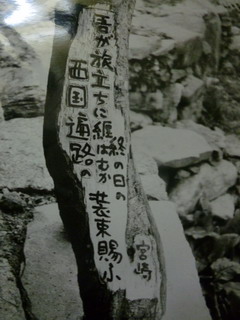 終の日の
吾が旅立ちに纏はむか
西国遍路の
装束賜ふ
宮崎